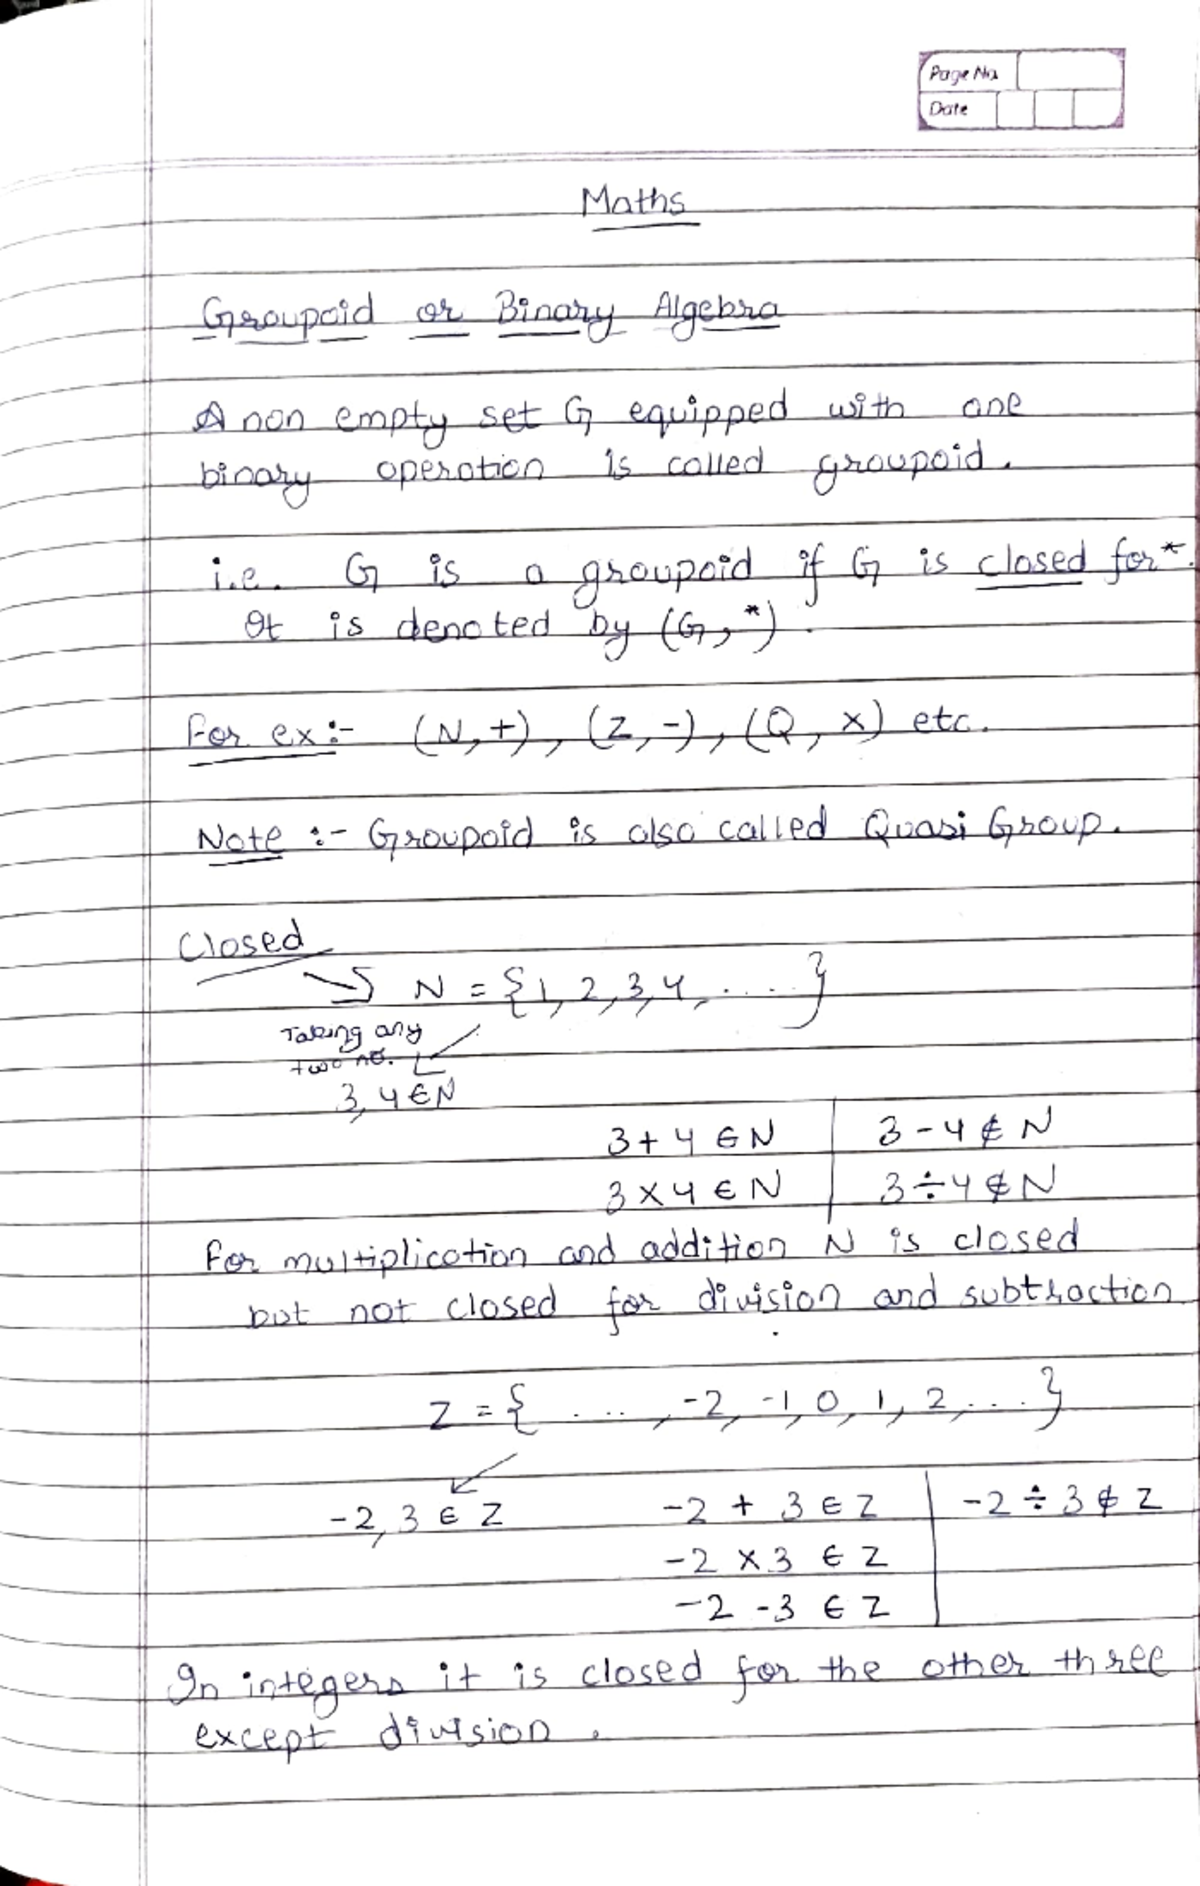 Page No.
Date
Maths
Groupoid or Binary Algebra
A non empty set G equipped with one
binary operation is called groupoid.
i.e. G is a groupoid if G is closed for *.
It is denoted by (G, *).
For ex :- (N, +), (Z, -), (Q, ×) etc.
Note :- Groupoid is also called Quasi Group.
Closed
→ N = {1, 2, 3, 4, .....}
Taking any
two no.
3, 4 ∈ N
3 + 4 ∈ N | 3 - 4 ∉ N
3 × 4 ∈ N | 3 ÷ 4 ∉ N
For multiplication and addition N is closed
but not closed for division and subtraction.
Z = { ....., -2, -1, 0, 1, 2, ... }
-2, 3 ∈ Z -2 + 3 ∈ Z | -2 ÷ 3 ∉ Z
-2 × 3 ∈ Z
-2 - 3 ∈ Z
In integers it is closed for the other three
except division.